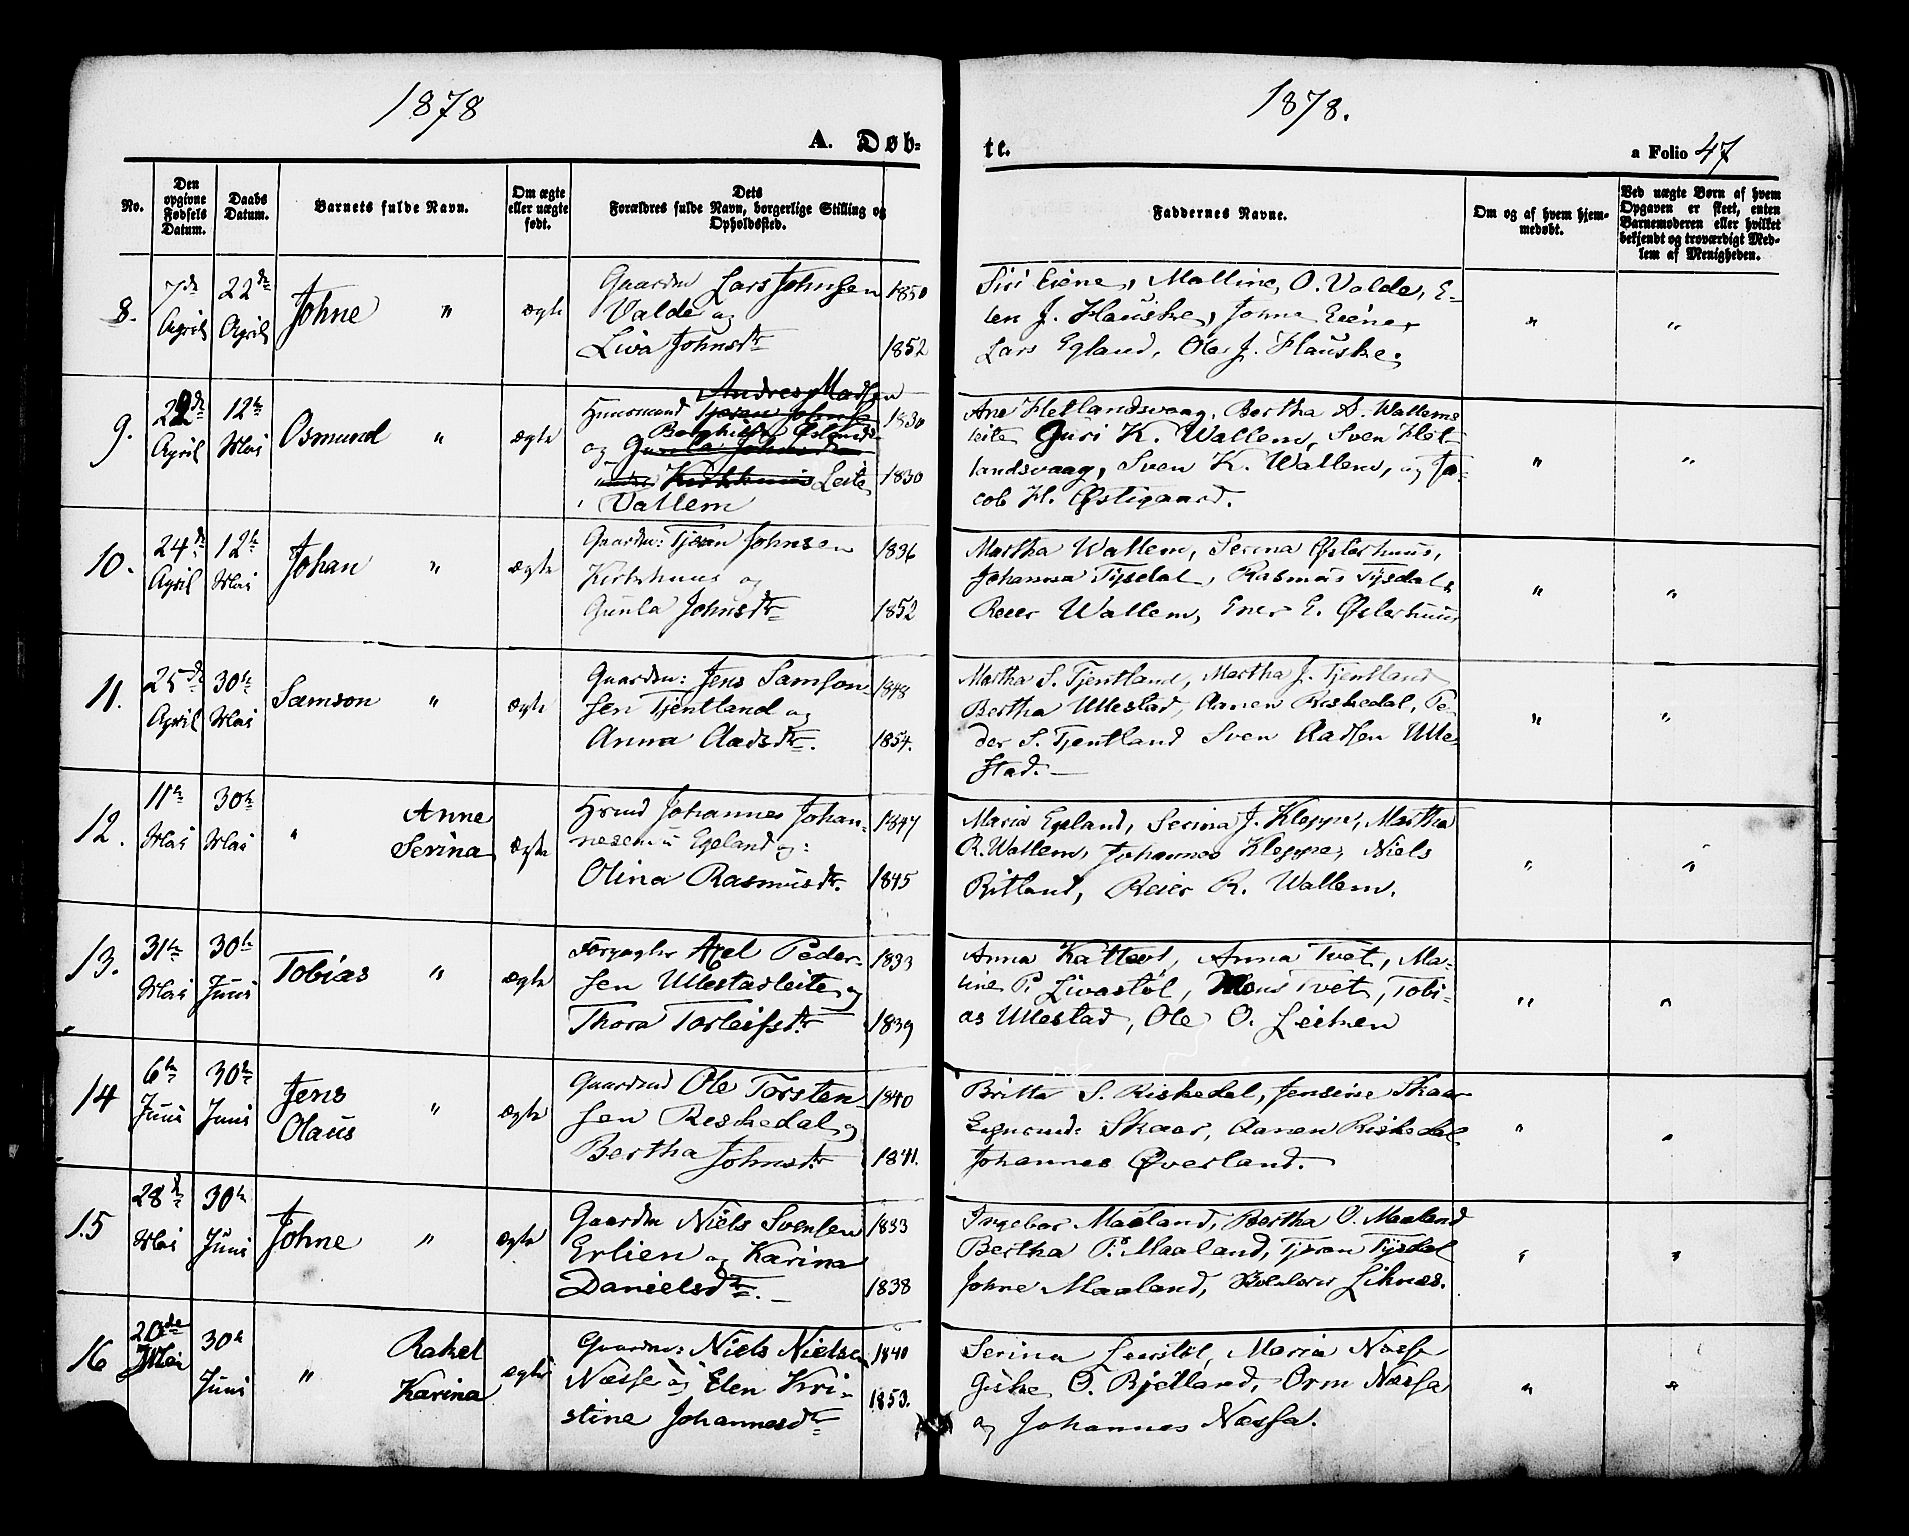 1878
A. Døb-
No.
Den opgivne Fødsels Datum.
Daabs Datum.
Barnets fulde Navn.
Om ægte eller uægte født.
Dets Forældres fulde Navn, borgerlige Stilling og Opholdssted.
8.
7de April
22de April
Johne "
ægte
Gaardm Lars Johnsen
Valde og
Liva Johnsdtr
1850
1852
9.
22de April
12te Mai
Osmund "
ægte
Andreas Madsen
Huusmand
og
Leite
i Vallem
1830
1830
10.
24de April
12te Mai
Johan "
ægte
Gaardm: Tjøran Johnsen
Kirkhuus og
Gunla Johnsdtr
1836
1852
11.
25de April
30te Mai
Samson "
ægte
Gaardm: Jens Samson-
sen Tjentland og
Anna Aadsdtr.
1848
1854.
12.
11te Mai
30te Mai
" Anne
Serina
ægte
Hmd Johannes Johan-
nesen Egeland og:
Olina Rasmusdtr.
1847
1845
13.
31te Mai
30te Juni
Tobias "
ægte
Axel Peder-
sen Ullestadleite og
Thora Torleifsdtr
1833
1839
14
6te Juni
30te Juni
Jens
Olaus "
ægte
Gaardmd Ole Torsten-
sen Reskedal og
Bertha Johnsdtr
1840
1841.
15
28de Mai
30te Juni
Johne "
ægte
Gaardm Niels Svensen
Erlien og Karina
Danielsdtr. —
1833
1838
16
20de Mai
30te Juni
" Rakel
Karina
ægte
Gaardm: Niels Nielsen
Næsse og Elen Kri-
stine Johannesdtr
1840
1853.
1878.
te.
a Folio 47
Faddernes Navne.
Om og af hvem hjem-
medøbt.
Ved uægte Børn af hvem
Opgaven er skeet, enten
Barnemoderen eller hvilket
bekjendt og troværdigt Med-
lem af Menigheden.
Siri Eiene, Malline O. Valde, E-
len J. Hauske, Johne Eiene,
Lars Egland, Ole J. Hauske.
" "
Ane Hetlandsvaag, Bertha A. Wallems
leite Guri K. Wallem, Sven Het-
landsvaag, Sven K. Wallem, og Ja-
cob H. Østigaard.
" "
Martha Wallem, Serina Østerhuus,
Johanna Tysdal, Rasmus Tysdal,
Reier Wallem, Ener E. Østerhuus
" "
Martha S. Tjentland, Martha J. Tjentland
Bertha Ullestad, Aanen Riskedal, Pe-
der S. Tjentland Sven Aadsen Ulle-
stad. —
" "
Maria Egeland, Serina J. Kleppe, Martha
R. Wallem, Johannes Kleppe, Niels
Ritland, Reier R. Wallem.
" "
Anna Anna Tvet, Ma-
line P. Livastøl, Mons Tvet, Tobi-
as Ullestad, Ole O.
" "
Britta S. Riskedal, Jensine Skaar
Skaar, Aanen Riskedal
Johannes Øverland.
" "
Ingebor Maaland, Bertha O. Maaland
Bertha P. Maaland, Tjøran Tysdal
Johne Maaland,
" "
Serina Maria Næsse
O. Bjelland, Orm Næssa
og Johannes Næssa.
" "